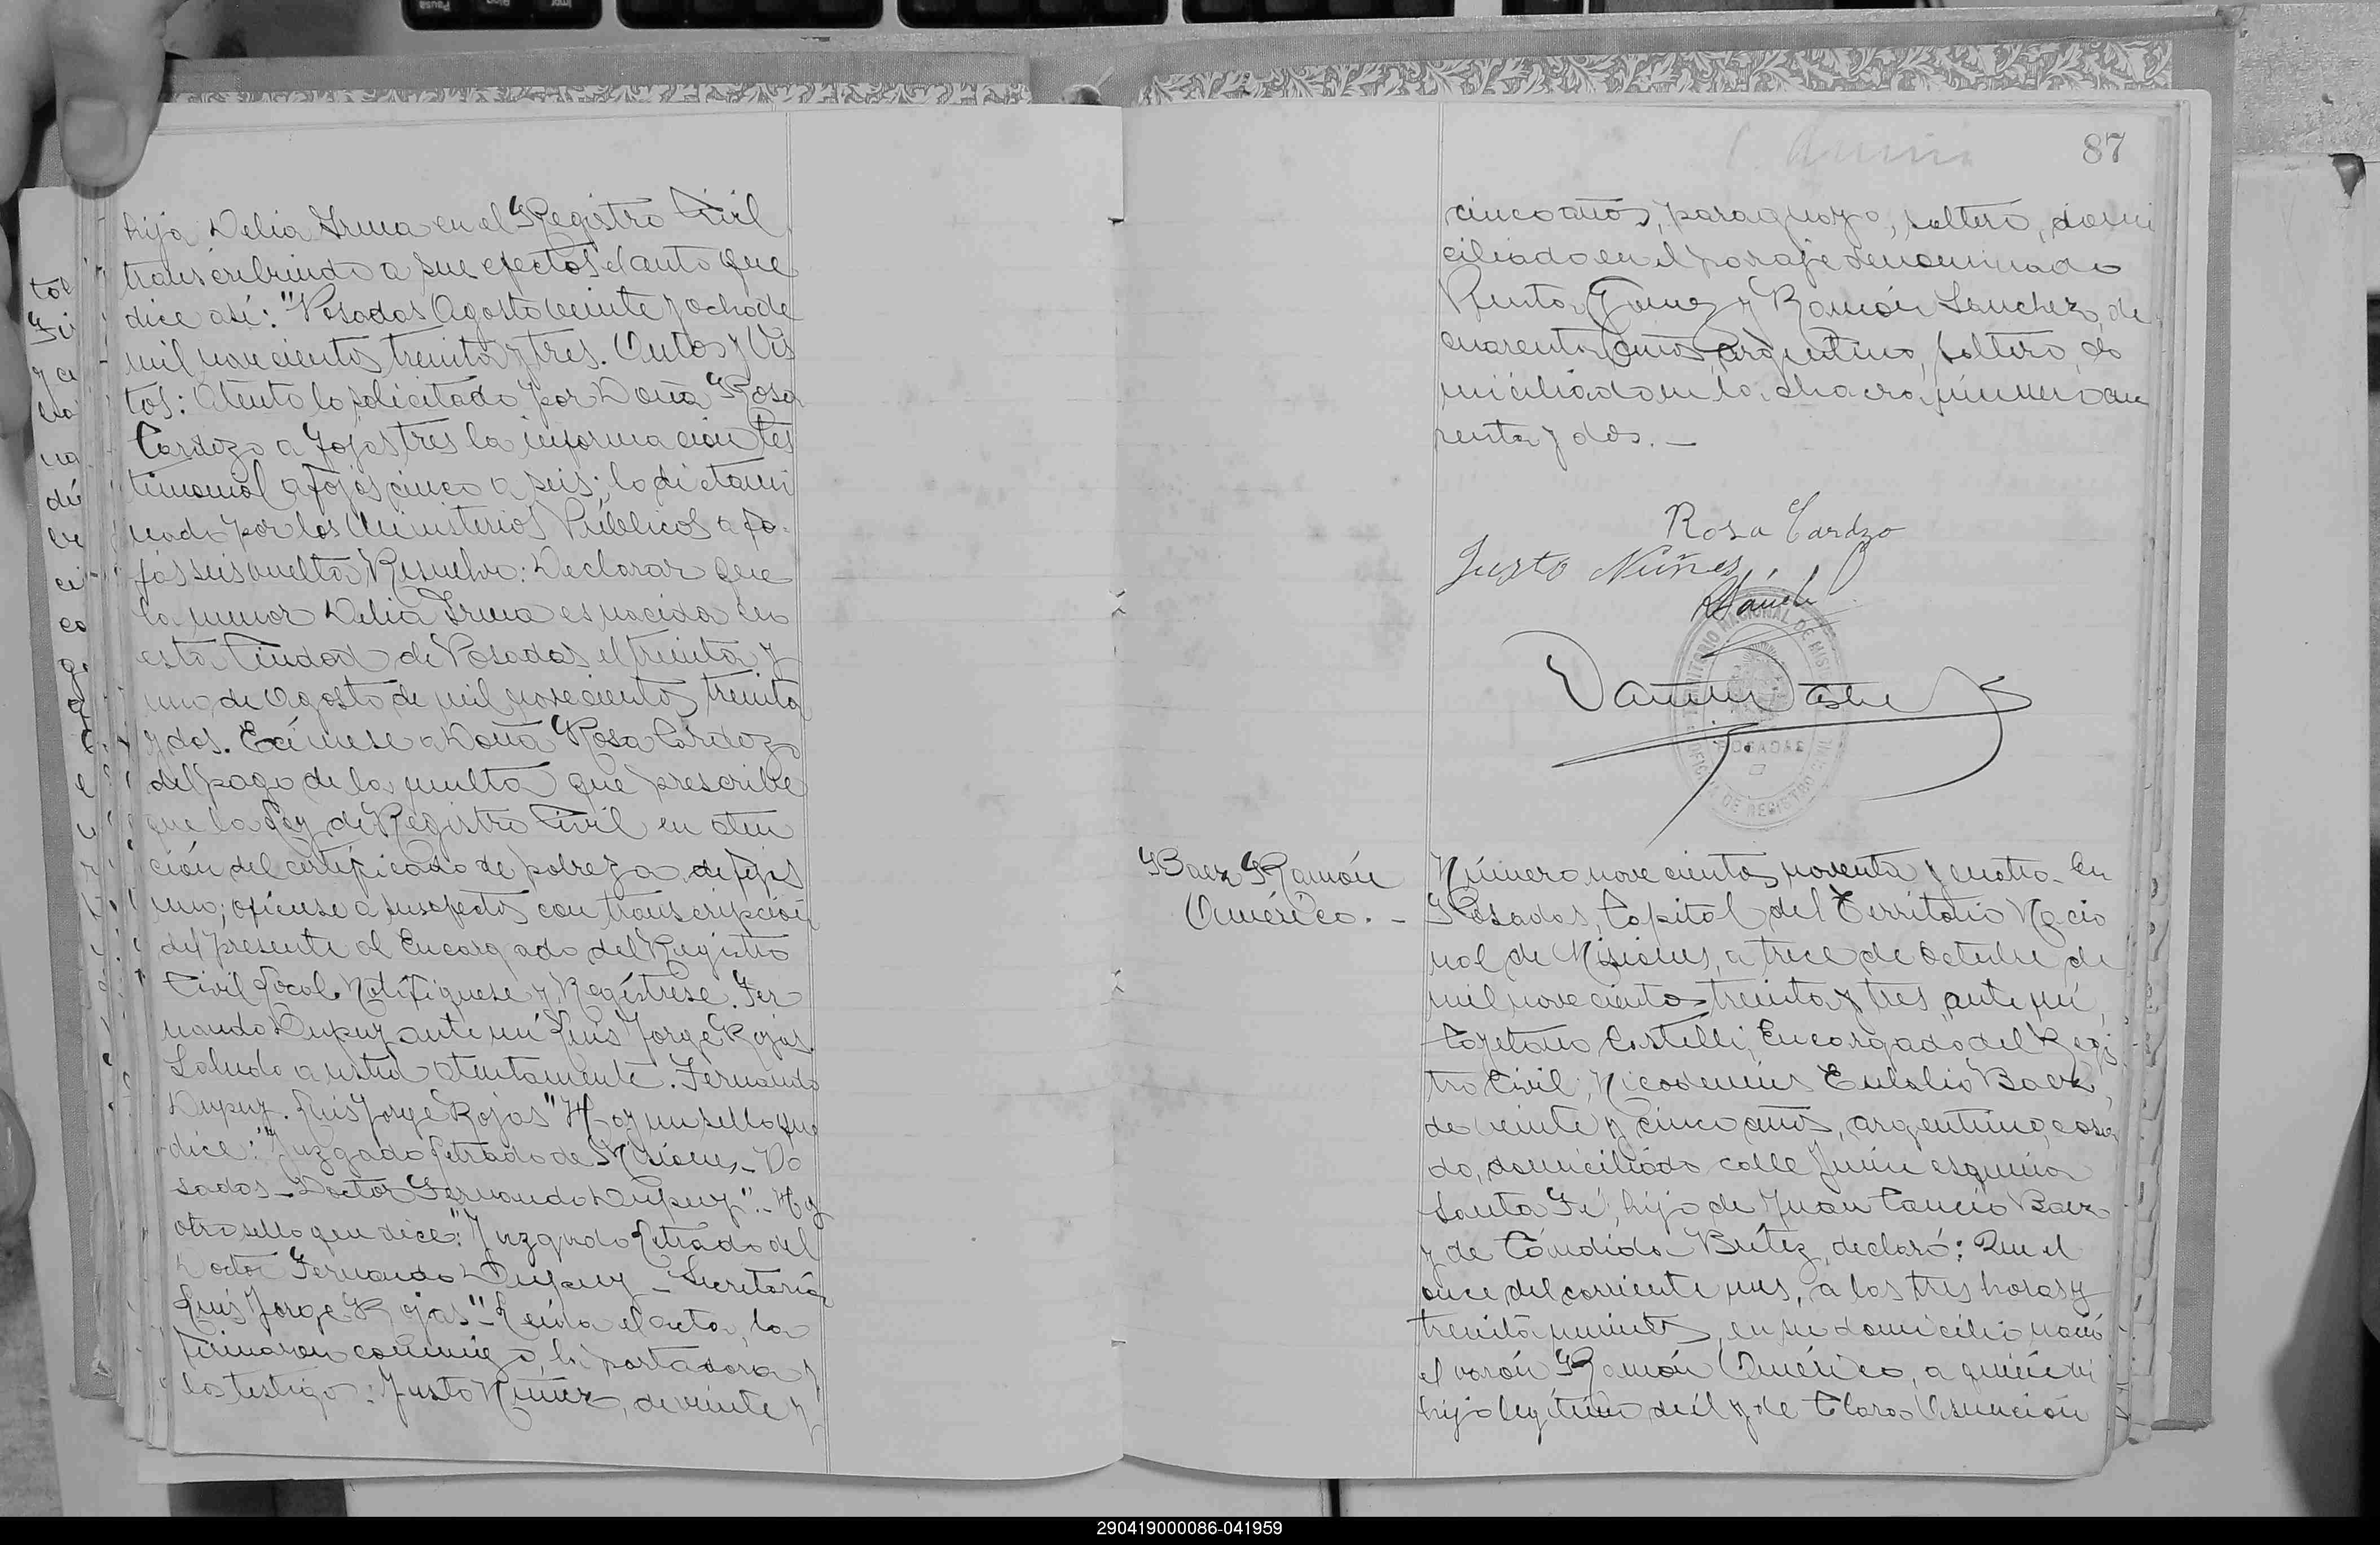 hija Delia Irma en el Registro Civil
transcribiendo a sus efectos el auto que
dice así: "Posadas Agosto veinte y ocho de
mil novecientos treinta y tres. Autos y Vis
tos: Atento lo solicitado por Doña Rosa
Cardozo a fojas tres la información tes
timonial a fojas cinco a seis; lo dictami
nado por los Ministerios Públicos a fo-
jas seis vuelta, Resuelvo: Declarar que
la menor Delia Irma es nacida en
esta Ciudad de Posadas el treinta y
uno de Agosto de mil novecientos treinta
y dos. Exímese a Doña Rosa Cardozo
del pago de la multa que prescribe
que la Ley de Registro Civil en aten
ción del certificado de pobreza de fojas
uno; ofíciese a sus efectos con transcripción
del presente al Encargado del Registro
Civil Local. Notifíquese y Regístrese. Fer
nando Dupuy ante mí Luis Jorge Rojas.
Saludo a usted atentamente. Fernando
Dupuy. Luis Jorge Rojas" Hay un sello que
dice: "Juzgado Letrado de Misiones - Po
sadas - Doctor Fernando Dupuy". - Hay
otro sello que dice: "Juzgado Letrado del
Doctor Fernando Dupuy - Secretaría
Luis Jorge Rojas" - Leída el acta, la
firmaron conmigo, la portadora y
los testigos: Justo Núñez, de veinte y
87
cinco años, paraguayo, soltero, domi
ciliado en el paraje denominado
Punta Gomez y Ramón Sanchez, de
cuarenta años, argentino, soltero, do
miciliado en la chacra número cua
renta y dos. -
Rosa Cardzo
Justo Núñes
TERRITORIO NACIONAL DE MISIONES
POSADAS
OFICINA DE REGISTRO CIVIL
Baez Ramón
Américo. -
Número novecientos noventa y cuatro - En
Posadas, Capital del Territorio Nacio
nal de Misiones, a trece de Octubre de
mil novecientos treinta y tres, ante mí,
Cayetano Castelli, Encargado del Regis
tro Civil, Nicodemus Eulalio Baez,
de veinte y cinco años, argentino, casa
do, domiciliado calle Junín esquina
Santa Fé, hijo de Juan Cancio Baez
y de Cándida Brítez, declaró: Que el
once del corriente mes, a las tres horas y
treinta minutos, en su domicilio nació
el varón Ramón Américo, a quién vi
hijo legítimo de él y de Clara Asunción
290419000086-041959